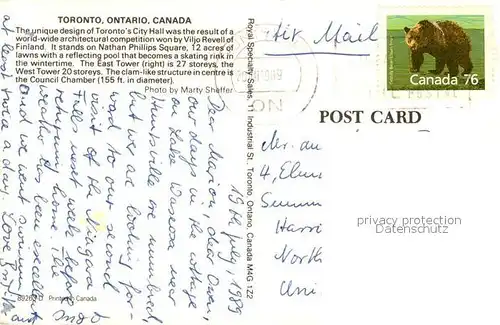 TORONTO, ONTARIO, CANADA
The unique design of Toronto's City Hall was the result of a
world-wide architectural competition won by Viljo Revell of
Finland. It stands on Nathan Phillips Square, 12 acres of
lawns with a reflecting pool that becomes a skating rink
in the wintertime. The East Tower (right) is 27 storeys, the
West Tower 20 storeys. The clam-like structure in centre is
the Council Chamber (155 ft. in diameter).
Photo by Marty Sheffer
19th July, 1989
Dear Marion, dear Owen,
our days in the cottage
on Lake Waseosa near
Huntsville are numbered,
but we are looking for-
ward to our second
visit of the Niagara
Falls next week before
returning home. The
weather has been excellent
and we went swimming
at least twice a day. Love
89262 D Printed in Canada
Royal Specialty Sales, 1 Industrial St., Toronto, Ontario, Canada M4G 1Z2
Air Mail
Canada 76
POST CARD
Mr. and
4, Elms
Harri
North
privacy protection
Datenschutz